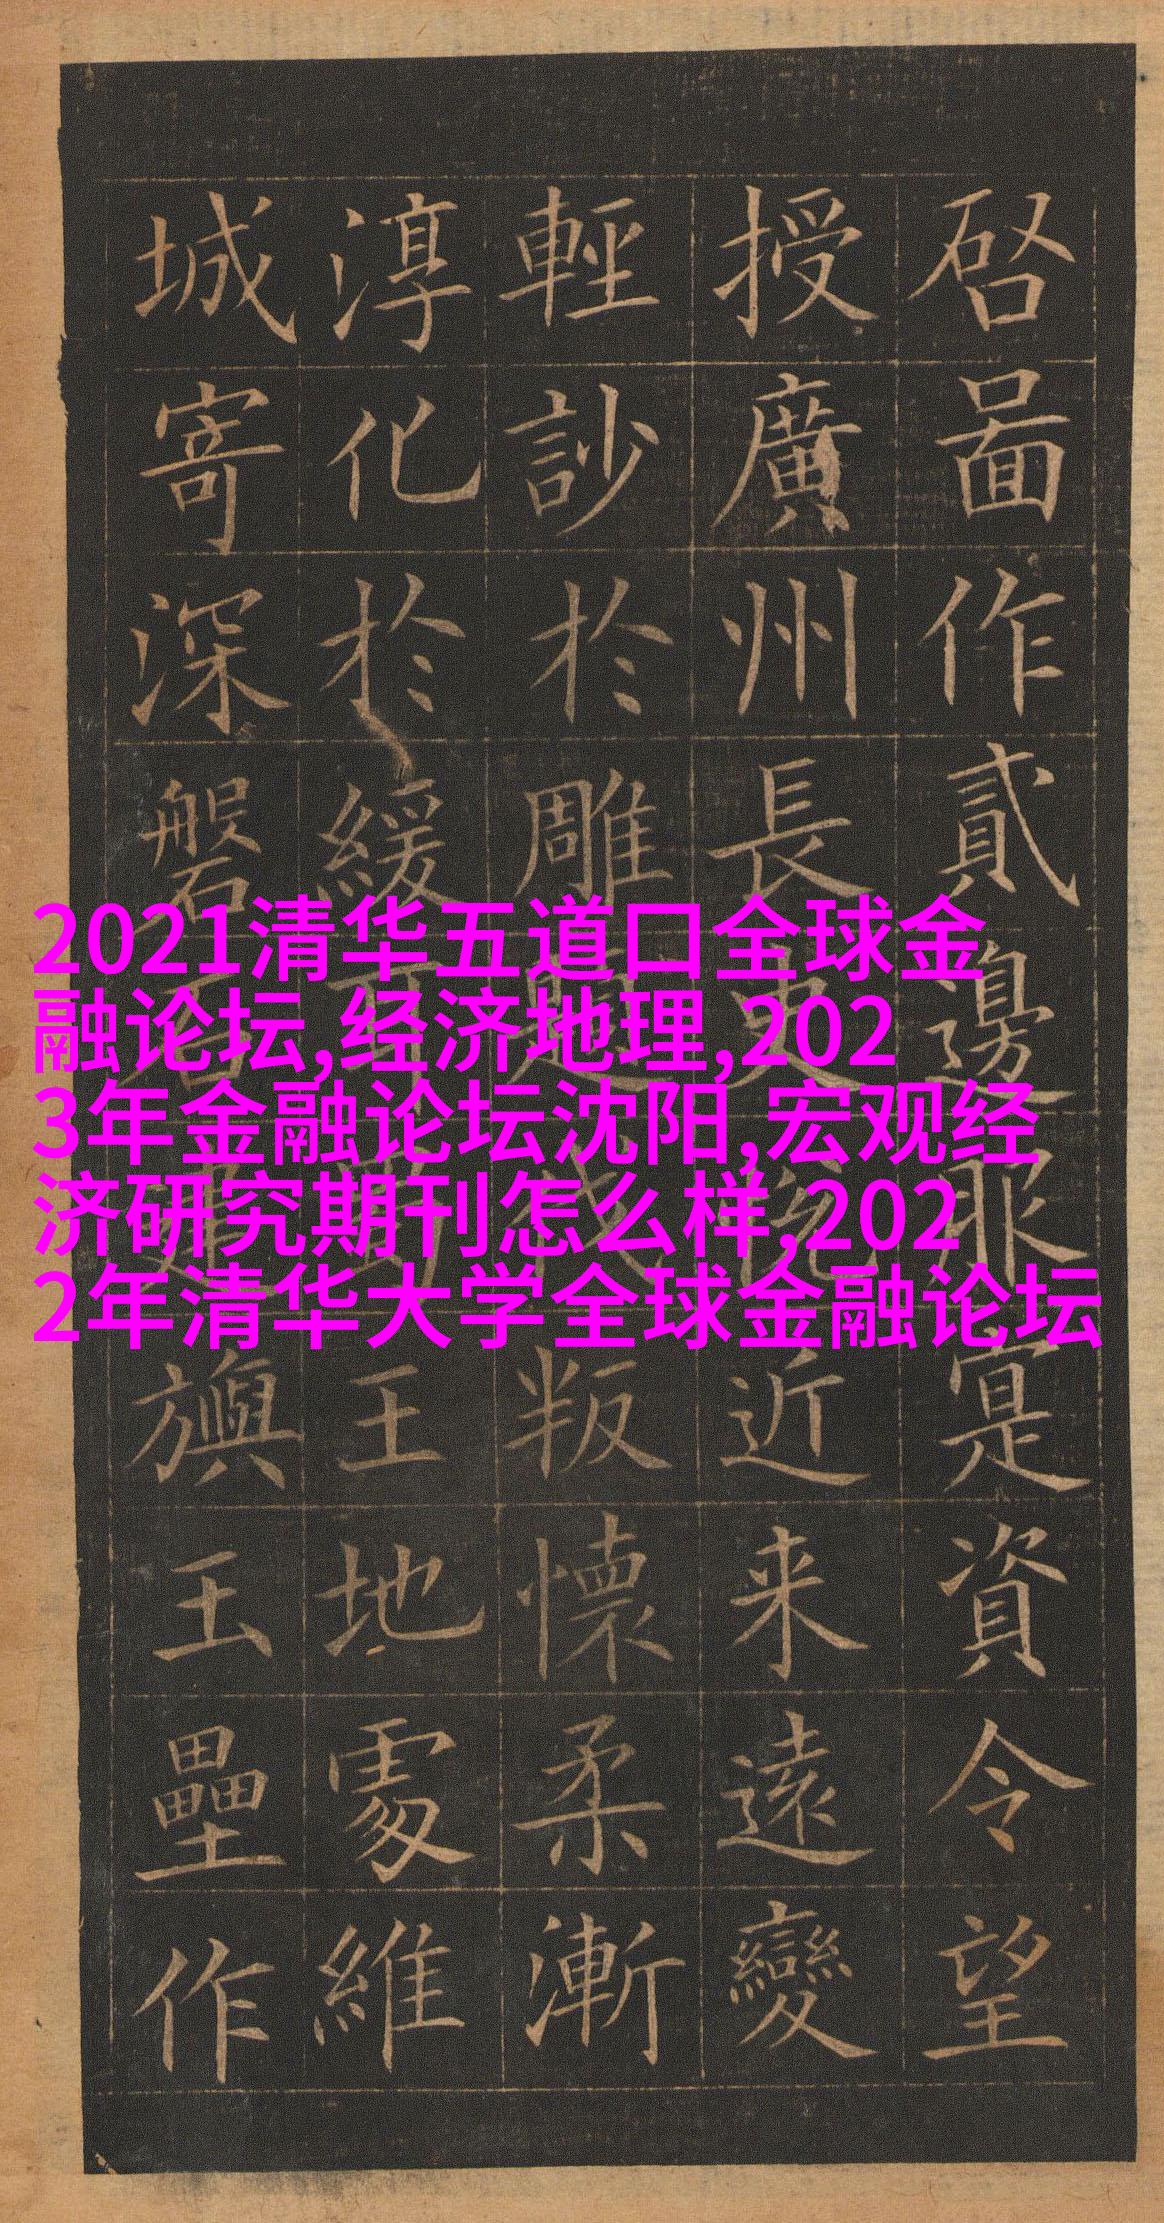 2021清华五道口全球金
融论坛,经济地理,202
3年金融论坛沈阳,宏观经
济研究期刊怎么样,202
2年清华大学全球金融论坛
啓啚作貳邊服寔資令望
授廣州長史近来遠變
輕訬於雕題叛懷柔漸
淳化於緩耳王地處維
城寄深磐石建旟玉壘作